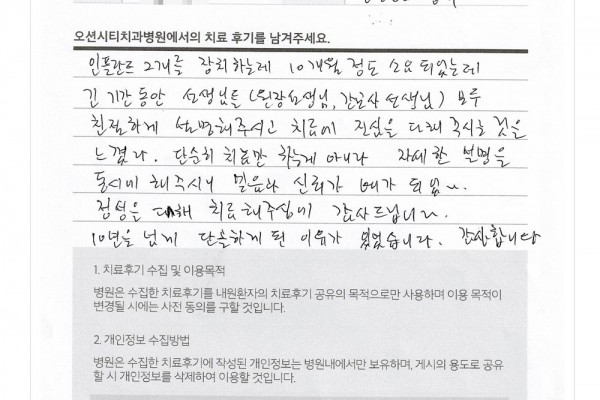 오션시티치과병원에서의 치료 후기를 남겨주세요.
인플란트 2개를 장치하는데 10개월 정도 소요 되었는데
긴 기간동안 선생님들 (원장선생님, 간호사 선생님) 모두
친절하게 설명해주시고 치료에 진심을 다해 주시는 것을
느꼈다. 단순히 치료만 하는게 아니라 자세한 설명을
동시에 해주시니 믿음과 신뢰가 배가 되었
정성을 다해 치료해주심에 감사드립니다.
10년을 넘게 단골하게 된 이유가 있었습니다. 감사합니다
1. 치료후기 수집 및 이용목적
병원은 수집한 치료후기를 내원환자의 치료후기 공유의 목적으로만 사용하며 이용 목적이
변경될 시에는 사전 동의를 구할 것입니다.
2. 개인정보 수집방법
병원은 수집한 치료후기에 작성된 개인정보는 병원내에서만 보유하며, 게시의 용도로 공유
할 시 개인정보를 삭제하여 이용할 것입니다.